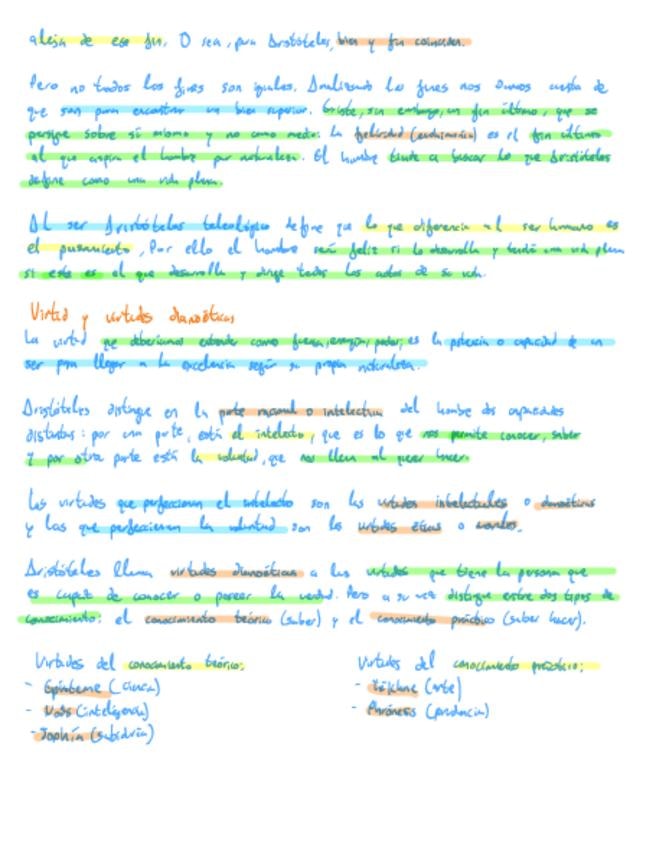 aleja de ese fin. O sea, para Aristóteles, bien y fin coinciden.
Pero no todos los fines son iguales. Analizando los fines nos damos cuenta de
que son para encontrar un bien superior. Existe, sin embargo, un fin último, que se
persigue sobre sí mismo y no como medio: la felicidad (eudaimonía) es el fin último
al que aspira el hombre por naturaleza. El hombre tiende a buscar lo que Aristóteles
define como una vida plena.
Al ser Aristóteles teleológico define que lo que diferencia al ser humano es
el pensamiento, Por ello el hombre será feliz si lo desarrolla y tendrá una vida plena
si este es el que desarrolla y dirige todos los actos de su vida.
Virtud y virtudes dianoéticas
La virtud que deberíamos entender como fuerza, energía, poder; es la potencia o capacidad de un
ser para llegar a la excelencia según su propia naturaleza.
Aristóteles distingue en la parte racional o intelectiva del hombre dos capacidades
distintas: por una parte, está el intelecto, que es lo que nos permite conocer, saber
y por otra parte está la voluntad, que nos lleva al querer hacer.
Las virtudes que perfeccionan el intelecto son las virtudes intelectuales o dianoéticas
y las que perfeccionan la voluntad son las virtudes éticas o morales.
Aristóteles llama virtudes dianoéticas a las virtudes que tiene la persona que
es capaz de conocer o poseer la verdad. Pero a su vez distingue entre dos tipos de
conocimiento: el conocimiento teórico (saber) y el conocimiento práctico (saber hacer).
Virtudes del conocimiento teórico:
- Episteme (ciencia)
- Noûs (inteligencia)
- Sophía (sabiduría)
Virtudes del conocimiento práctico:
- Tékhne (arte)
- Phrónesis (prudencia)